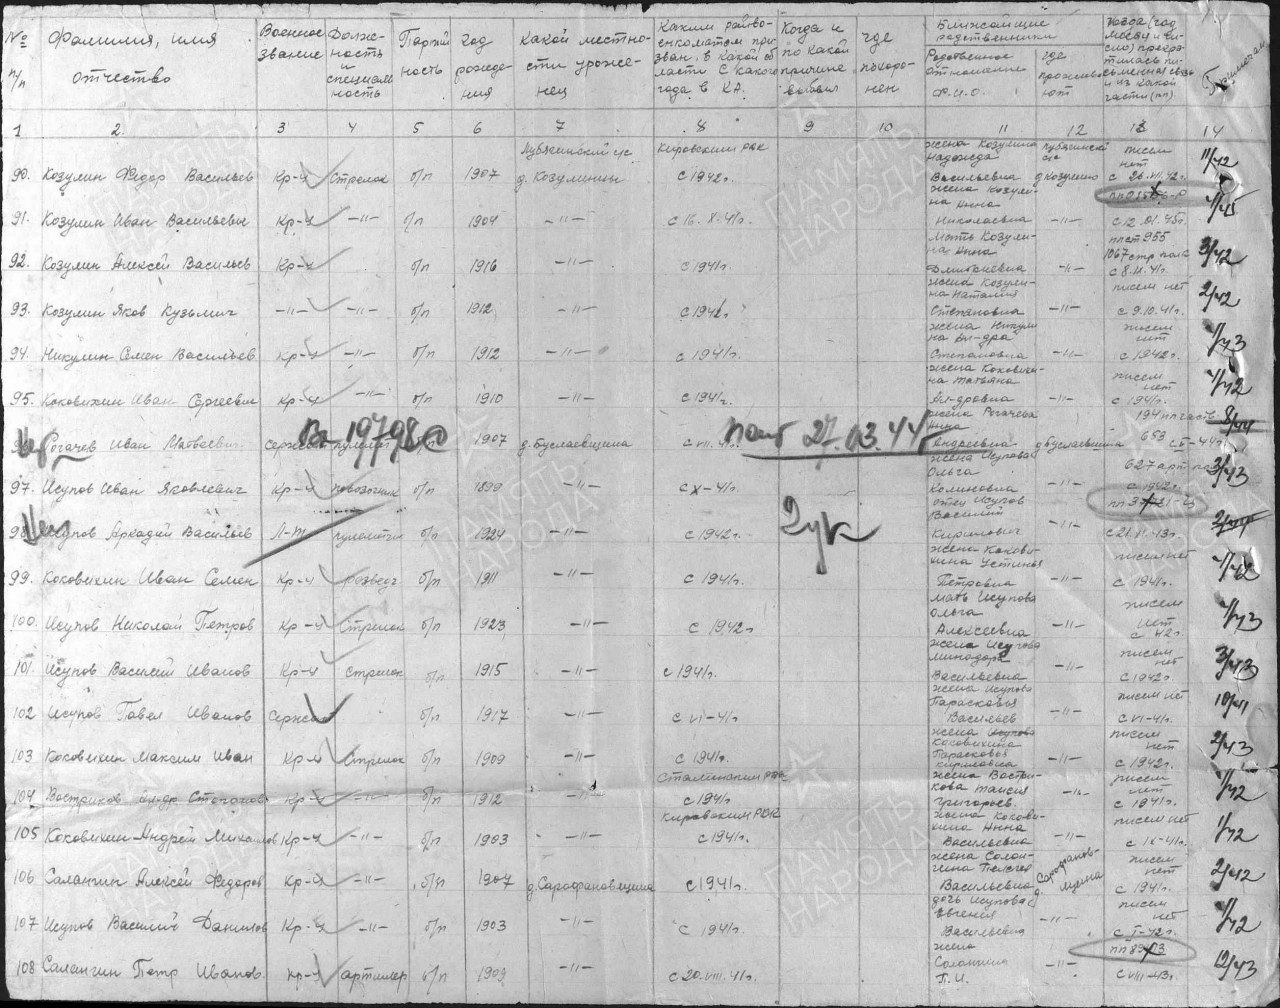 № п/п
Фамилия, имя отчество
Военное звание
Долж-ность и специаль-ность
Партий ность
год рожде-ния
Какой местно-сти уроже-нец
Каким райво-енкоматом при-зван, в какой об-ласти с какого года в КА.
Когда и по какой причине выбыл
где похоро-нен
Ближайшие родственники
Родственное отношение Ф.И.О.
где прожива-ют
Примечан.
1 2. 3 4 5 6 7 8 9 10 11 12 13 14
90. Козулин Федор Васильев Кр-ц Стрелок б/п 1907 д. Козулинцы Кировский РВК с 1942г. жена Козулина Надежда Васильевна д Козулино писем нет с 26.VII.42г. 11/42
91. Козулин Иван Васильевич Кр-ц -"- б/п 1904 -"- с 16.8-41г. жена Козули-на Анна Николаевна -"- с 12.01.45г. 4/45
92. Козулин Алексей Васильев Кр-ц б/п 1916 -"- с 1941г. Мать Козули-на Анна Дмитриевна -"- ппст 955 1067 стр полк с 8.11.41г. 3/42
93. Козулин Яков Кузьмич -"- -"- б/п 1912 -"- с 1941г. жена Козули-на Наталия Степановна -"- писем нет с 9.10.41г. 2/42
94. Никулин Семен Васильев Кр-ц -"- б/п 1912 -"- с 1941г. жена Никули на Ал-дра Степановна -"- писем нет с 1942г. 1/43
95. Коковихин Иван Сергеевич Кр-ц -"- б/п 1910 -"- с 1941г. жена Коковихи-на Татьяна Ал-дровна -"- писем нет с 1941г. 4/42
96. Рогачев Иван Матвеевич сержант Вх 19798с б/п 1907 д. Буслаевщина с VII.41г. погиб 27.03.44г жена Рогачева Анна Андреевна д Буслаевщина 653 с I-44г. 8/44
97. Исупов Иван Яковлевич Кр-ц повозочник б/п 1899 -"- с X-41г. жена Исупова Ольга -"- 627 арт пол с 1942г. 3/43
98. Исупов Аркадий Васильев Л-т б/п 1924 -"- с 1942г. отец Исупов Василий Кирилович -"- с 21.VI.43г.
99. Коковихин Иван Семен Кр-ц развед б/п 1911 -"- с 1941г. жена Кокови-хина Устинья Петровна -"- писем нет с 1941г. 1/42
100. Исупов Николай Петров Кр-ц Стрелок б/п 1923 -"- с 1942г мать Исупова Ольга Алексеевна -"- писем нет с 42г. 1/43
101. Исупов Василий Иванов Кр-ц стрелок б/п 1915 -"- с 1941г. жена Исупова Минодора Васильевна -"- писем нет с 1942г 3/43
102 Исупов Павел Иванов Сержан б/п 1917 -"- с VI-41г. жена Исупова Парасковья Васильев -"- писем нет с VI-41г. 10/41
103 Коковихин Максим Иван Кр-ц Стрелок б/п 1909 -"- с 1941г. жена Коковихина Парасковья Кириловна -"- писем нет с 1942г. 2/43
104 Востриков Ал-др Степанов Кр-ц -"- б/п 1912 -"- Сталинским РВК с 1941г жена Востри-кова Таисия Григорьев. -"- писем нет с 1941г. 1/42
105 Коковихин Андрей Михайлов Кр-ц -"- б/п 1903 -"- Кировским РВК с 1941г. жена Кокови-хина Анна Васильевна -"- писем нет с IX-41г. 1/42
106 Салангин Алексей Федоров Кр-ц -"- б/п 1907 д. Сарафановщина с 1941г. жена Салан-гина Васильевна д. Сарафанов-щина писем нет с 1941г. 2/42
107 Исупов Василий Данилов Кр-ц -"- б/п 1903 -"- с 1941г. дочь Исупова Евгения Васильевна -"- писем нет с I-42г. 1/42
108 Салангин Петр Иванов. кр-ц артилер б/п 1909 -"- с 20.VIII.41г. жена Салангина П.И. -"- с VIII-43г. 12/43
ПАМЯТЬ НАРОДА